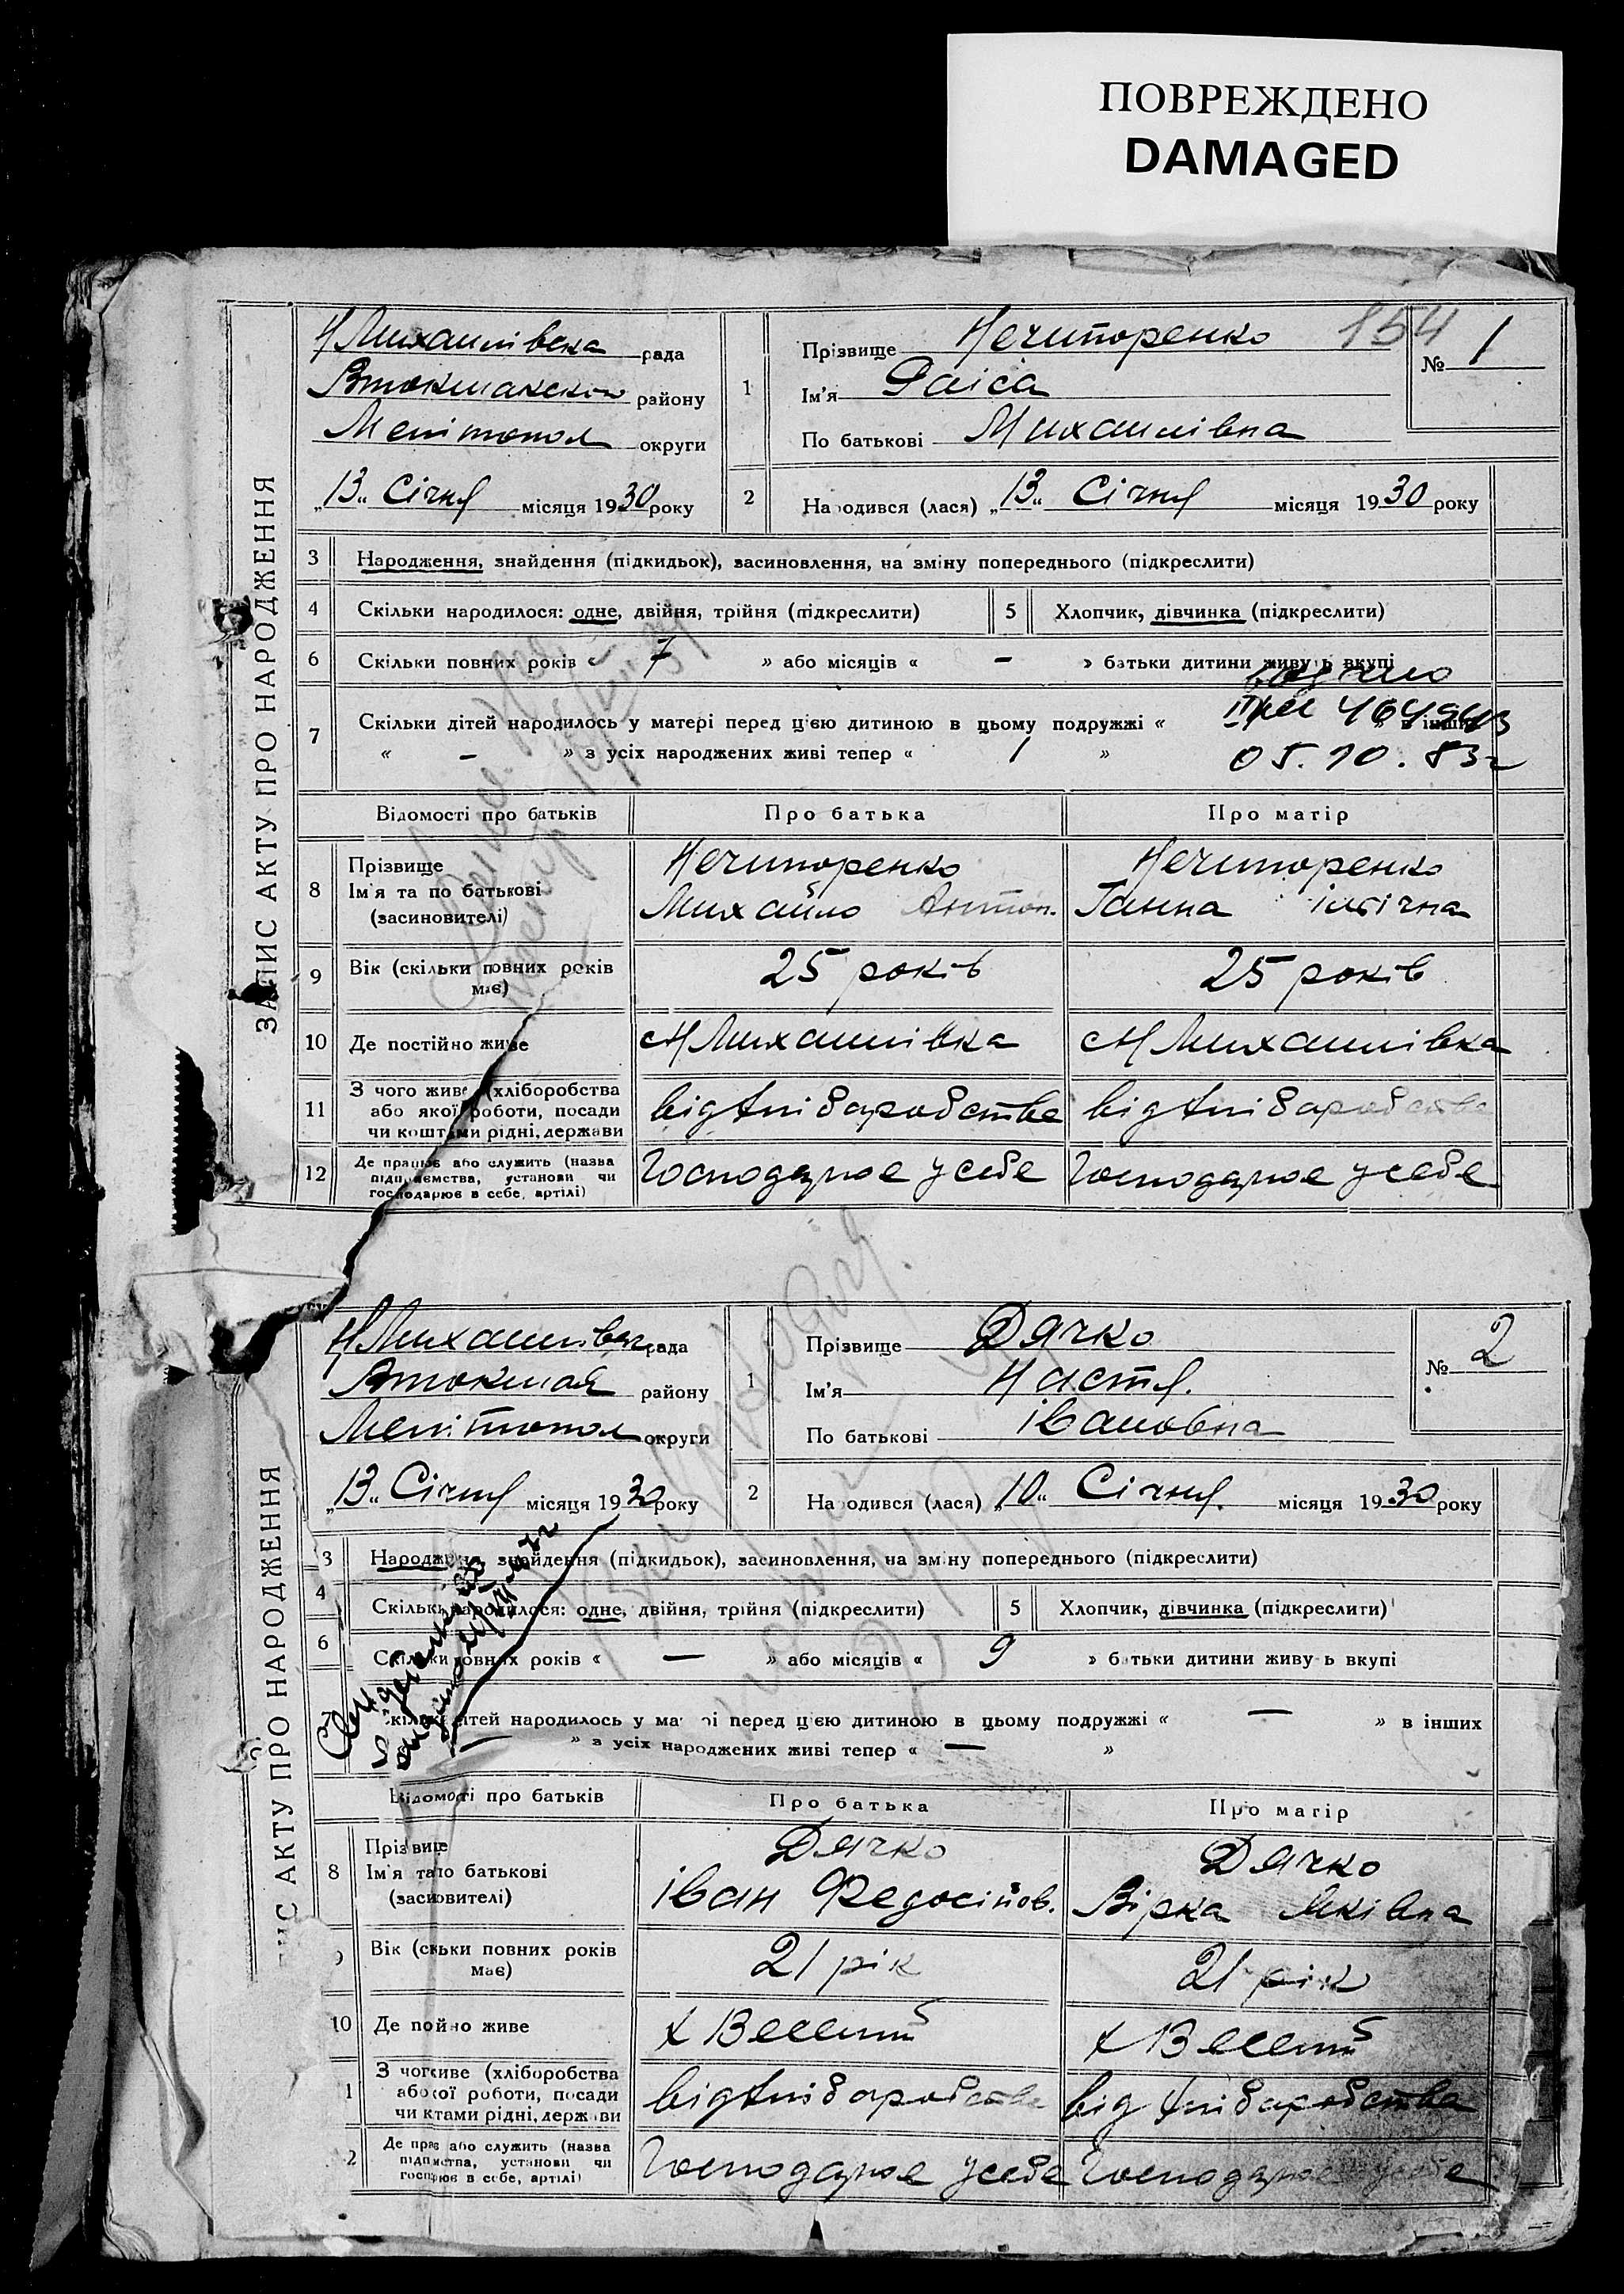 ПОВРЕЖДЕНО
DAMAGED
ЗАПИС АКТУ ПРО НАРОДЖЕННЯ
Н Михайлівська рада
Втокмакского району
Мелітопол округи
„13„ Січня місяця 1930 року
1
Прізвище Нечипоренко
154
№ 1
Ім'я Раіса
По батькові Михайлівна
2 Народився (лася) „13„ Січня місяця 1930 року
3 Народження, знайдення (підкидьок), засиновлення, на зміну попереднього (підкреслити)
4 Скільки народилося: одне, двійня, трійня (підкреслити) 5 Хлопчик, дівчинка (підкреслити)
6 Скільки повних років « 7 » або місяців « - » батьки дитини живуть вкупі
7 Скільки дітей народилось у матері перед цією дитиною в цьому подружжі « » в інших
« - » з усіх народжених живі тепер « 1 »
05.10.83г
Відомості про батьків Про батька Про матір
8 Прізвище
Ім'я та по батькові
(засиновителі)
Нечипоренко
Михайло Антон.
Нечипоренко
Ганна Іллічна
9 Вік (скільки повних років має) 25 років 25 років
10 Де постійно живе сН Михайлівка сН Михайлівка
11 З чого живе (хліборобства
або якої роботи, посади
чи коштами рідні, держави
від хліборобства від хліборобства
12 Де працює або служить (назва
підприємства, установи чи
господарює в себе, артілі)
Господарює у себе Господарює у себе
ЗАПИС АКТУ ПРО НАРОДЖЕННЯ
Н Михайлівск рада
Втокмак району
Мелітопол округи
„13„ Січня місяця 1930 року
1
Прізвище Дячко
№ 2
Ім'я Настя.
По батькові Івановна
2 Народився (лася) „10„ Січня. місяця 1930 року
3 Народження, знайдення (підкидьок), засиновлення, на зміну попереднього (підкреслити)
4 Скільки народилося: одне, двійня, трійня (підкреслити) 5 Хлопчик, дівчинка (підкреслити)
6 Скільки повних років « — » або місяців « 9 » батьки дитини живуть вкупі
7 Скільки дітей народилось у матері перед цією дитиною в цьому подружжі « — » в інших
— » з усіх народжених живі тепер « — »
Відомості про батьків Про батька Про матір
8 Прізвище
Ім'я та по батькові
(засиновителі)
Дячко
Іван Федосійов.
Дячко
Вірка Яківна
Вік (скільки повних років має) 21 рік 21 рік
10 Де постійно живе х Веселий х Веселий
З чого живе (хліборобства
або якої роботи, посади
чи коштами рідні, держави
від хліборобства від хліборобства
Де працює або служить (назва
підприємства, установи чи
господарює в себе, артілі)
Господарює у себе Господарює у себе